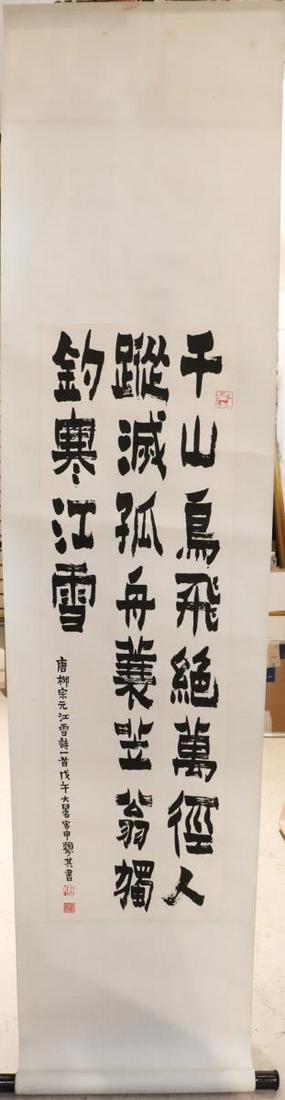 千山鳥飛絶萬徑人
蹤滅孤舟蓑笠翁獨
釣寒江雪
唐柳宗元江雪詩一首戊午大暑甲其書